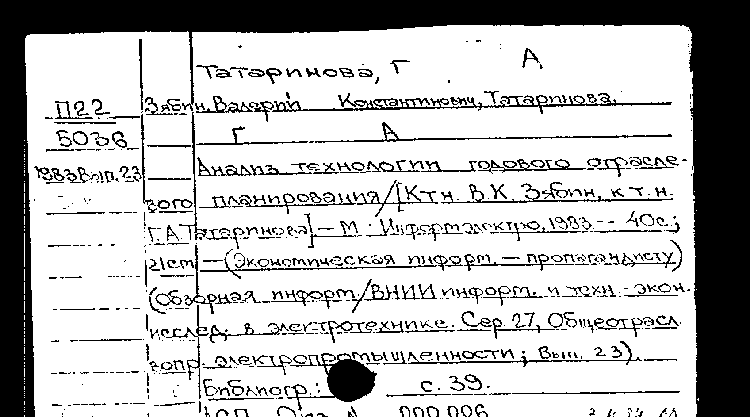 Татаринова, Г А
П22 Зябин, Валерий Константинович, Татаринова,
5036 Г А
1983 Вып. 23 Анализ технологии годового отрасле-
вого планирования/[К.т.н. В.К. Зябин, к.т.н.
Г.А. Татаринова]. — М : Информэлектро, 1983 -- 40с.;
21см — (Экономическая информ. — пропагандисту)
(Обзорная информ./ВНИИ информ. и техн.-экон.
исслед. в электротехнике. Сер 27, Общеотрасл.
вопр. электропромышленности; Вып. 23).
Библиогр.: с. 39.
000.006